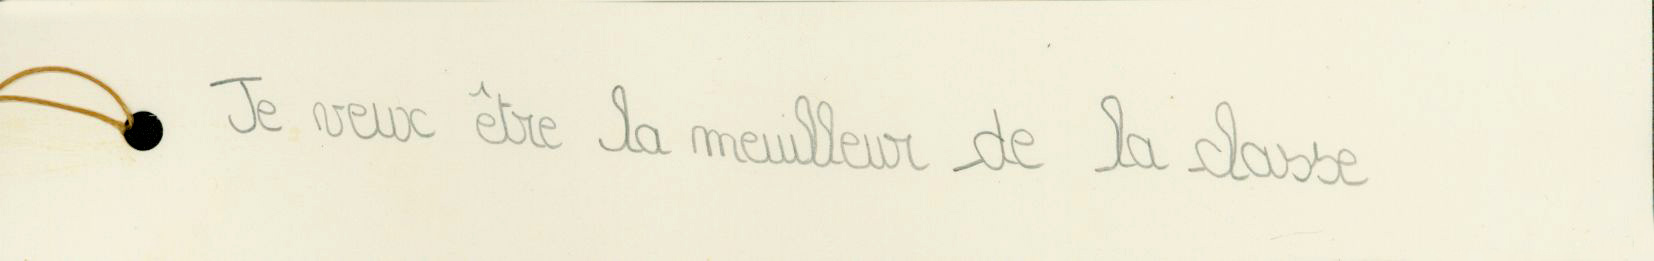 Je veux être la meuilleur de la classe